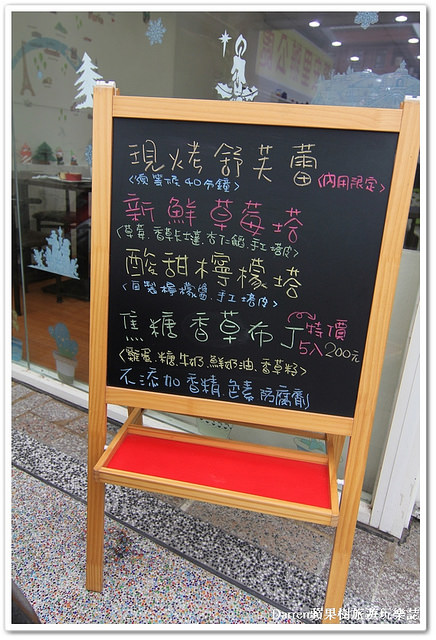 現烤舒芙蕾
<須等候40分鐘> <內用限定>
新鮮草莓塔
<草莓.香草卡士達.杏仁餡.手工塔皮>
酸甜檸檬塔
<自製檸檬醬.手工塔皮>
焦糖香草布丁 特價
5入200元
<雞蛋.糖.牛奶.鮮奶油.香草籽>
不添加香精.色素.防腐劑
Darren蘋果樹旅遊玩樂誌